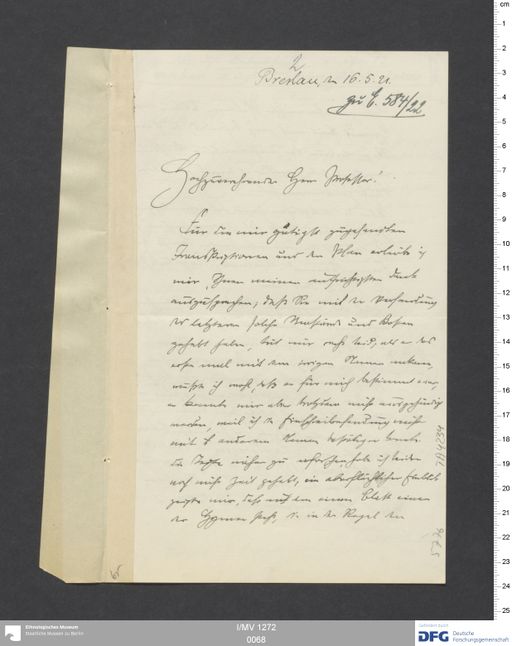 2
Breslau, den 16.5.21.
zu E. 584/22
Hochzuverehrender Herr Professor!
Für die mir gütigst zugesandten
Transkriptionen und den Plan erlaube ich
mir, Ihnen meinen aufrichtigsten Dank
auszusprechen; daß Sie mit der Versendung
des letzteren solche Umstände und Kosten
gehabt haben, tut mir recht leid, als er das
erste mal mit dem Namen ankam,
wußte ich wohl, daß er für mich bestimmt war,
er konnte mir aber trotzdem nicht ausgehändigt
werden, weil ich die Einschreibesendung nicht
mit anderem Namen
die Texte näher zu erforschen, habe ich leider
noch nicht Zeit gehabt, ein oberflächlicher Einblick
zeigte mir, daß auf dem einen Blatt einer
der Hymnen steht, die in der Regel den
TA 4234
5778
65
Ethnologisches Museum
Staatliche Museen zu Berlin
I/MV 1272
0068
DFG Deutsche
Forschungsgemeinschaft
cm
1
2
3
4
5
6
7
8
9
10
11
12
13
14
15
16
17
18
19
20
21
22
23
24
25